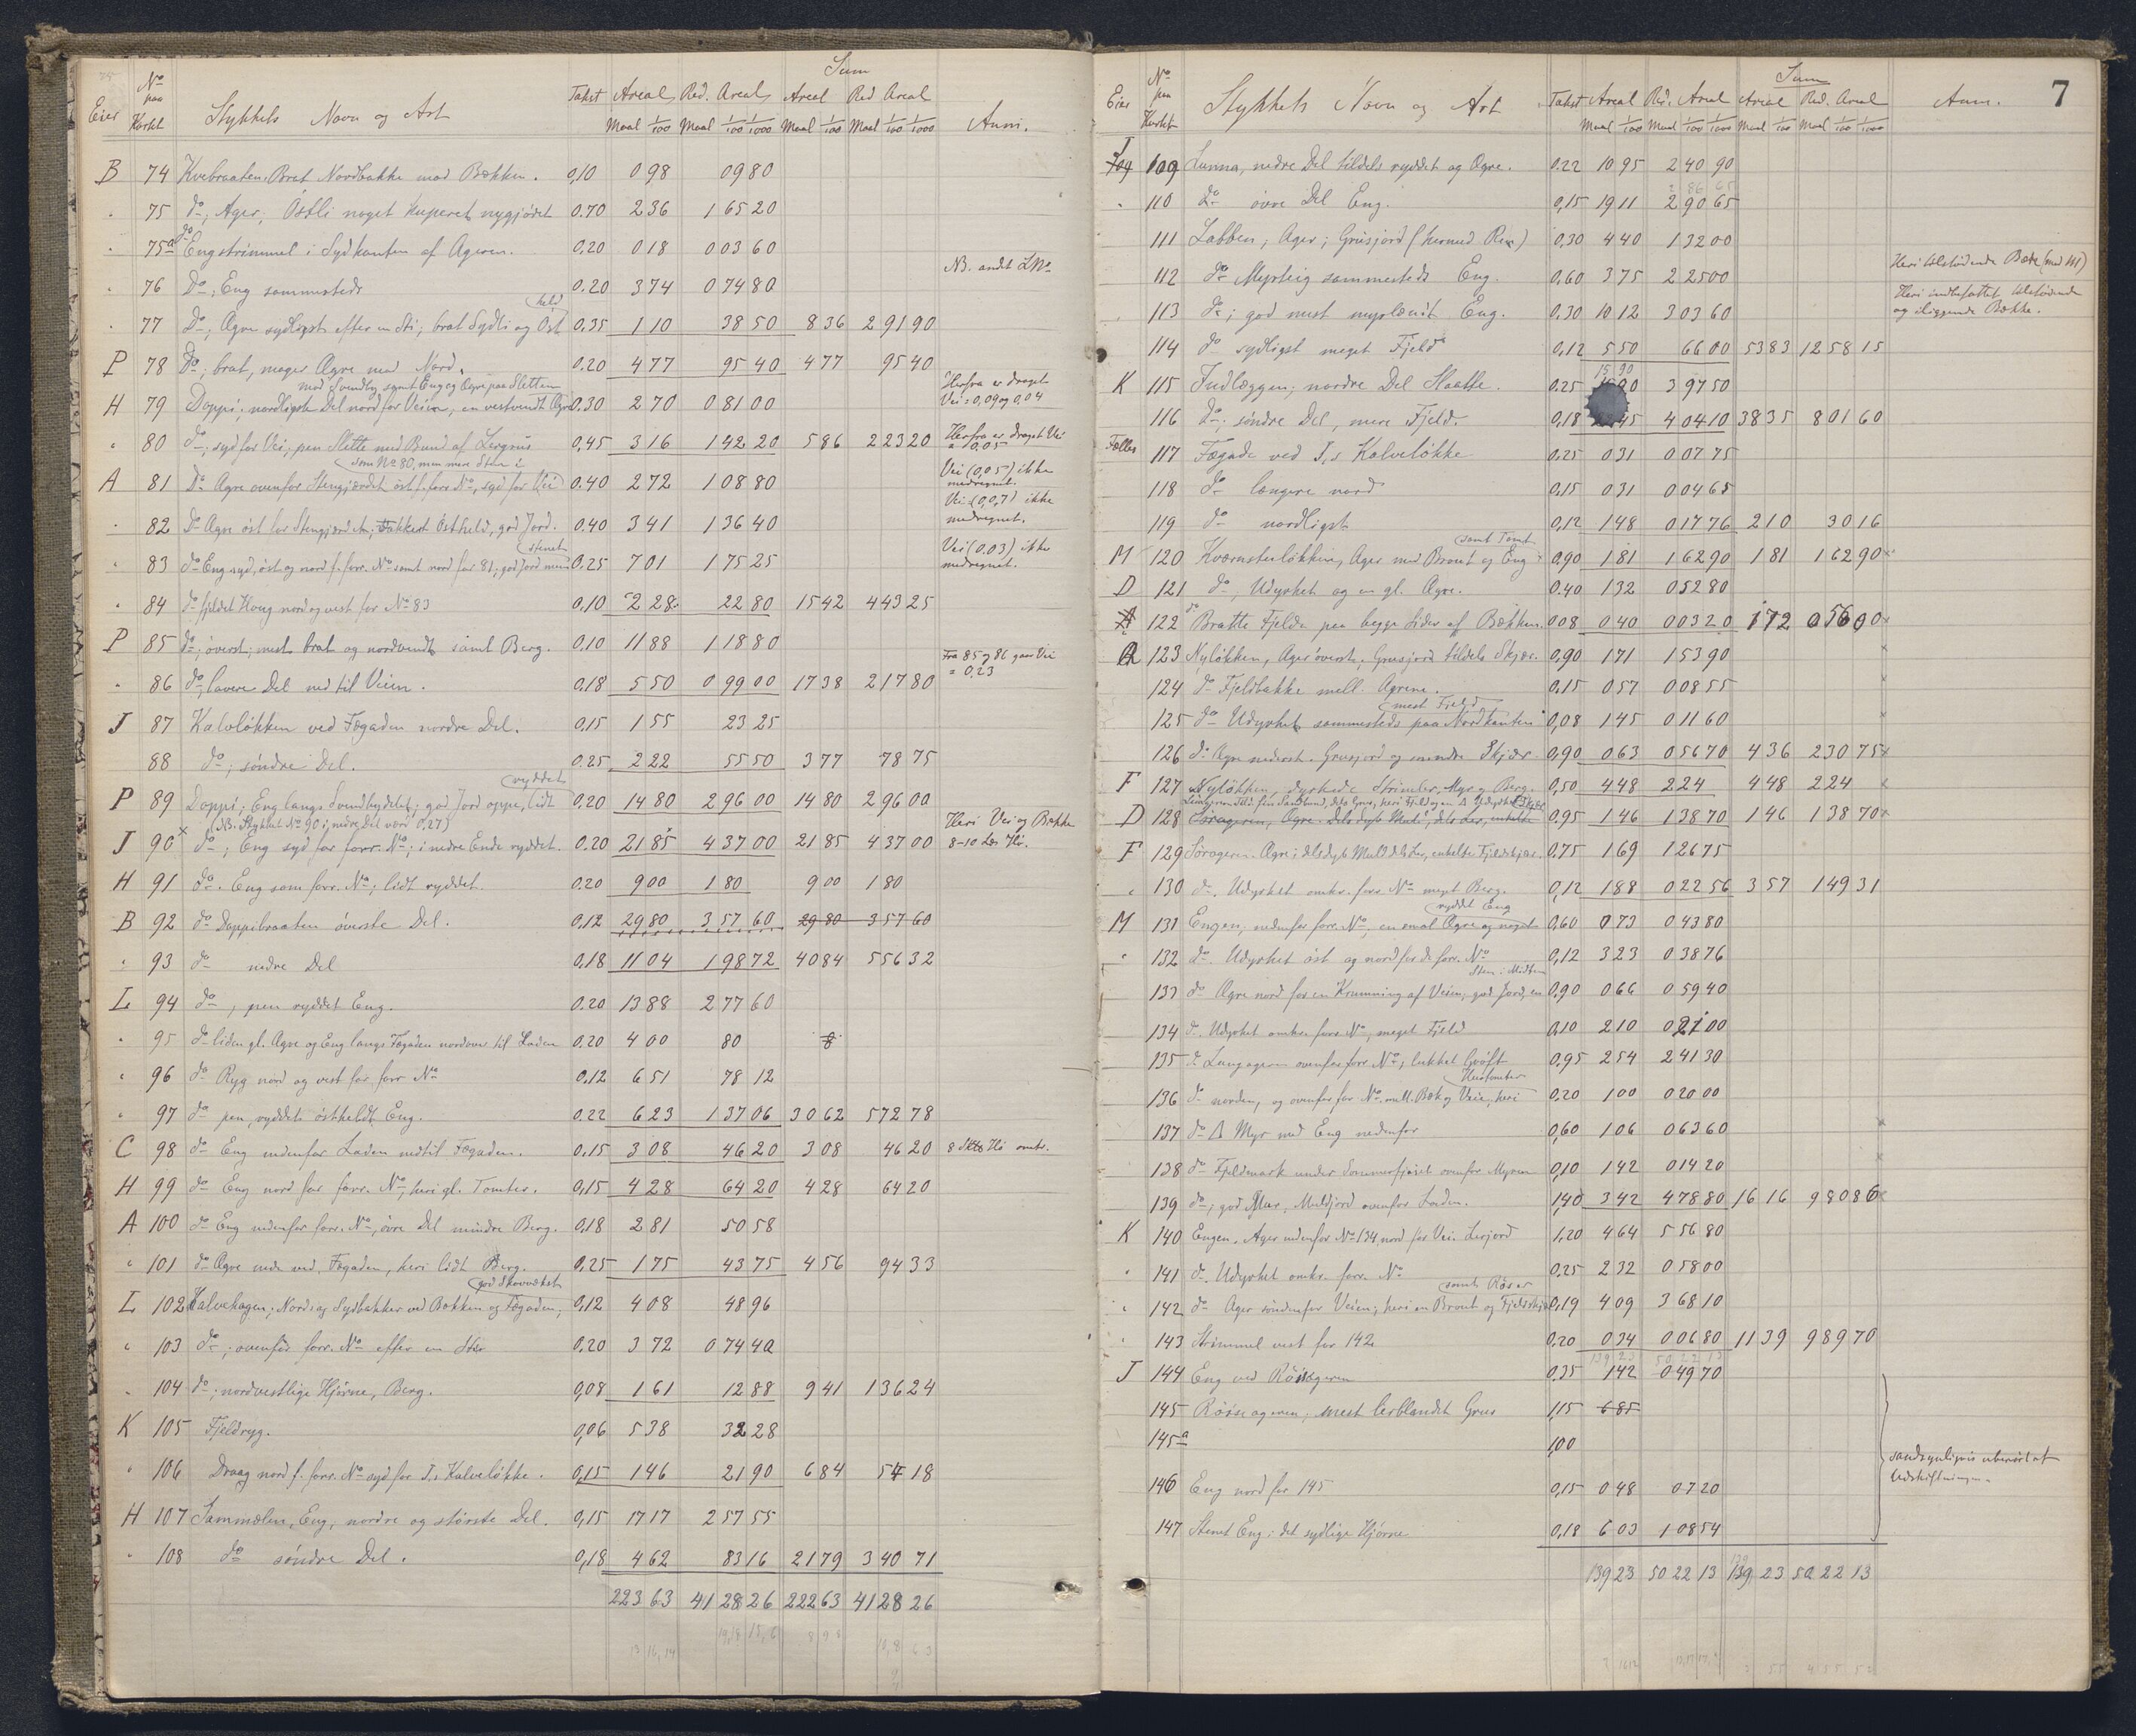 Sum
Eier No paa Kartet Stykkets Navn og Art Takst Areal Red. Areal Areal Red Areal Anm.
Maal 1/100 Maal 1/100 1/1000 Maal 1/100 Maal 1/100 1/1000
B 74 Kvebraaten, Brat Nordbakke mod Bækken. 0,10 0 98 09 80
" 75 do; Ager; Østli noget kuperet nygjødet 0.70 2 36 1 65 20
" 75a do Engstrimmel i Sydkanten af Ageren. 0.20 0 18 0 03 60
NB. andet LNo
" 76 Do; Eng sammesteds 0.20 3 74 0 74 80
held
" 77 Do; Agre sydligst efter en Sti; brat Sydli og Øst 0.35 1 10 38 50 8 36 2 91 90
P 78 Do; brat, mager Agre mod Nord. 0.20 4 77 95 40 4 77 95 40
mod Svendby samt Eng og Agre paa Sletten
H 79 Doppi. nordligste Del nord for Veien, en vestvendt Agre 0.30 2 70 0 81 00 Herfra er draget Vei = 0,09 og 0,04
" 80 do; syd for Vei; pen Slette med Bund af Lergrus 0,45 3 16 1 42 20 5 86 2 23 20 Herfra er draget Vei = 0,05
som No 80, men mere Sten i
A 81 Do Agre ovenfor Stengjærdet øst f. forr No, syd for Vei 0.40 2 72 1 08 80 Vei (0,05) ikke medregnet.
" 82 Do Agre øst for Stengjærdet, Østheld, god Jord. 0.40 3 41 1 36 40 Vei (0,07) ikke medregnet.
stenet
" 83 do Eng syd, øst og nord f. forr. No samt nord for 81; god Jord men 0.25 7 01 1 75 25 Vei (0.03) ikke medregnet.
" 84 do fjeldet Houg nord og vest for No 83 0,10 2 28 22 80 15 42 4 43 25
P 85 do; øverst; mest brat og nordvendt samt Berg. 0.10 11 88 1 18 80
Fra 85 og 86 gaar Vei = 0,23
" 86 do; lavere Del ned til Veien. 0.18 5 50 0 99 00 17 38 2 17 80
J 87 Kalveløkken ved Fægaden nordre Del. 0.15 1 55 23 25
88 do; søndre Del. 0.25 2 22 55 50 3 77 78 75
ryddet
P 89 Doppi; Eng langs Svendbydelet; god Jord oppe, lidt 0.20 14 80 2 96 00 14 80 2 96 00
(NB. Stykket No 90 i nedre Del værd 0,27)
J 90 do; Eng syd for forr. No; i nedre Ende ryddet. 0.20 21 85 4 37 00 21 85 4 37 00 Heri Vei og Bække 8-10 Læs Hø.
H 91 do. Eng som forr. No; lidt ryddet. 0.20 9 00 1 80 9 00 1 80
B 92 do Doppibraaten øverste Del. 0,12 29 80 3 57 60 29 80 3 57 60
" 93 do nedre Del 0.18 11 04 1 98 72 40 84 5 56 32
L 94 do, pen ryddet Eng. 0.20 13 88 2 77 60
" 95 do liden gl. Agre og Eng langs Fægaden nordover til Laden 0.20 4 00 80
" 96 do Ryg nord og vest for forr No 0.12 6 51 78 12
" 97 do pen, ryddet østheldt Eng. 0.22 6 23 1 37 06 30 62 5 72 78
C 98 do Eng nedenfor Laden nedtil Fægaden. 0.15 3 08 46 20 3 08 46 20 8 Hø omtr.
H 99 do Eng nord for forr. No, heri gl. Tomter. 0,15 4 28 64 20 4 28 64 20
A 100 do Eng nedenfor forr. No, øvre Del mindre Berg. 0,18 2 81 50 58
" 101 do Agre nede ved Fægaden, heri lidt Berg. 0,25 1 75 43 75 4 56 94 33
god Skovvækst
L 102 Kalvehagen; Nord og Sydbakker ved Bækken og Fægaden; 0,12 4 08 48 96
" 103 do; ovenfor forr. No efter en Sti 0.20 3 72 0 74 40
" 104 do; nordvestlige Hjørne, Berg. 0,08 1 61 12 88 9 41 1 36 24
K 105 Fjeldryg. 0,06 5 38 32 28
" 106 Draag nord f. forr. No syd for J.s Kalveløkke. 0,15 1 46 21 90 6 84 54 18
H 107 Sammelen, Eng, nordre og største Del. 0,15 17 17 2 57 55
" 108 do søndre Del. 0,18 4 62 83 16 21 79 3 40 71
223 63 41 28 26 222 63 41 28 26
7
Sum
Eier No paa Kartet Stykkets Navn og Art Takst Areal Red. Areal Areal Red. Areal Anm.
Maal 1/100 Maal 1/100 1/1000 Maal 1/100 Maal 1/100 1/1000
J 109 Lunna, nedre Del tildels ryddet og Agre. 0.22 10 95 2 40 90
2 86 65
" 110 do øvre Del Eng. 0,15 19 11 2 90 65
111 Labben; Ager; Grusjord (hermed Rein) 0,30 4 40 1 32 00
112 do Myrteig sammesteds Eng. 0,60 3 75 2 25 00 Heri tilstødende Bæk (mod 111)
113 do; god mest myrlændt Eng. 0.30 10 12 3 03 60 Heri indbefattet tilstødende og iliggende Bække.
114 do sydligst meget Fjeld 0,12 5 50 66 00 53 83 12 58 15
K 115 Indlæggen; nordre Del Slaatte. 0.25 15 90 3 97 50
116 do; søndre Del, mere Fjeld. 0,18 45 4 04 10 38 35 8 01 60
Fælles 117 Fægade ved J.s Kalveløkke 0.25 0 31 0 07 75
118 do længere nord 0,15 0 31 0 04 65
119 do nordligst 0,12 1 48 0 17 76 2 10 30 16
samt Tomt
M 120 Kværnsterløkken, Ager med Brout og Eng 0,90 1 81 1 62 90 1 81 1 62 90 ×
D 121 do, Udyrket og en gl. Agre. 0.40 1 32 0 52 80
122 do Bratte Fjelde paa begge Sider af Bækken. 0 08 0 40 0 03 20 1 72 0 56 00 ×
Q 123 Nyløkken, Ager øverst. Grusjord tildels Skjær. 0,90 1 71 1 53 90 ×
124 do Fjeldbakke mell. Agrene. 0,15 0 57 0 08 55 ×
mest Fjeld
125 do Udyrket sammesteds paa Nordkanten 0,08 1 45 0 11 60 ×
126 do Agre nederst. Grusjord og mindre Skjær. 0,90 0 63 0 56 70 4 36 2 30 75 ×
F 127 Nyløkken, dyrkede Strimler, Myr og Berg. 0,50 4 48 2 24 4 48 2 24 ×
D 128 Sørageren, Agre. 0,95 1 46 1 38 70 1 46 1 38 70 ×
F 129 Sørageren. Agre; dels dyb Muld dels Ler, enkelte Fjeldskjær. 0.75 1 69 1 26 75
" 130 do. Udyrket omkr. forr No meget Berg. 0,12 1 88 0 22 56 3 57 1 49 31
ryddet Eng
M 131 Engen, nedenfor forr. No, en smal Agre og noget 0,60 0 73 0 43 80
" 132 do. Udyrket øst og nord for de forr. No 0,12 3 23 0 38 76
Sten i Midten
133 do Agre nord for en Krumning af Veien; god Jord, en 0,90 0 66 0 59 40
134 do. Udyrket omkr. forr No, meget Fjeld 0,10 2 10 0 21 00
135 do Langageren ovenfor forr. No; lukket Grøft 0,95 2 54 2 41 30
Hustomter
136 do norden, og ovenfor forr No. mell. Bæk og Veie, heri 0,20 1 00 0 20 00
137 do Δ Myr med Eng nedenfor 0,60 1 06 0 63 60 ×
138 do Fjeldmark under Sommerfjøset ovenfor Myren 0,10 1 42 0 14 20 ×
139 do; god Myr, Muldjord ovenfor Laden. 1,40 3 42 4 78 80 16 16 9 80 86 ×
K 140 Engen. Ager nedenfor No 134 nord for Vei. Lerjord 1,20 4 64 5 56 80
" 141 do. Udyrket omkr. forr. No 0,25 2 32 0 58 00
samt Røser
" 142 do Ager søndenfor Veien; heri en Brout og Fjeldskjær 0,19 4 09 3 68 10
" 143 Strimmel vest for 142 0.20 0 34 0 06 80 11 39 9 89 70
139 23 50 22 13
J 144 Eng ved Røiseageren 0,35 1 42 0 49 70
145 Røiseageren; mest lerblandet Grus 1,15 6 85
145a 1,00
sandsynligvis uberørt af Udskiftningen.
146 Eng nord for 145 0,15 0 48 07 20
147 Stenet Eng i det sydlige Hjørne 0,18 6 03 1 08 54
139 23 50 22 13 139 23 50 22 13